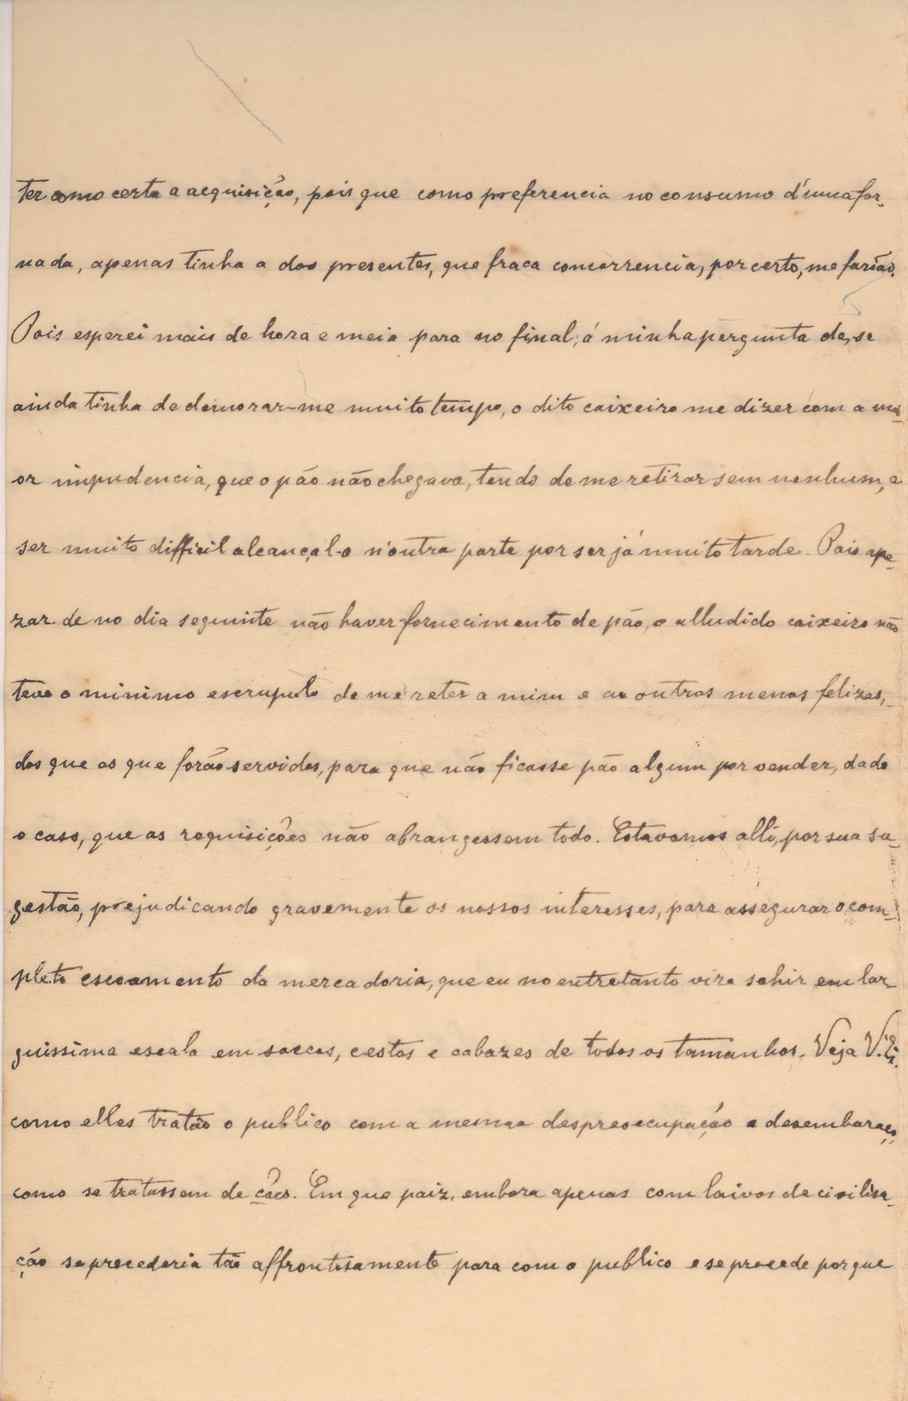 ter como certa a acquisição, pois que como preferencia no consumo d'uma for-
nada, apenas tinha a dos presentes, que fraca concorrencia, por certo, me farião.
Pois esperei mais de hora e meia para no final, á minha pergunta de, se
ainda tinha de demorar-me muito tempo, o dito caixeiro me dizer com a mai-
or impudencia, que o pão não chegava, tendo de me retirar sem nenhum, e
ser muito difficil alcançal-o n'outra parte por ser já muito tarde. Pois ape-
zar de no dia seguinte não haver fornecimento de pão, o alludido caixeiro não
teve o minimo escrupulo de me reter a mim e a outros menos felizes,
dos que os que forão servidos, para que não ficasse pão algum por vender, dado
o caso, que as requisições não abrangessem todo. Estavamos alli, por sua su-
gestão, prejudicando gravemente os nossos interesses, para assegurar o com-
pleto escoamento da mercadoria, que eu no entretanto vira sahir em lar-
guissima escala em saccos, cestos e cabazes de todos os tamanhos. Veja V. Ex.
como elles tratão o publico com a mesma despreoccupação e desembaraço,
como se tratassem de cães. Em que paiz, embora apenas com laivos de civilisa-
ção se procederia tão affrontosamente para com o publico e se procede porque